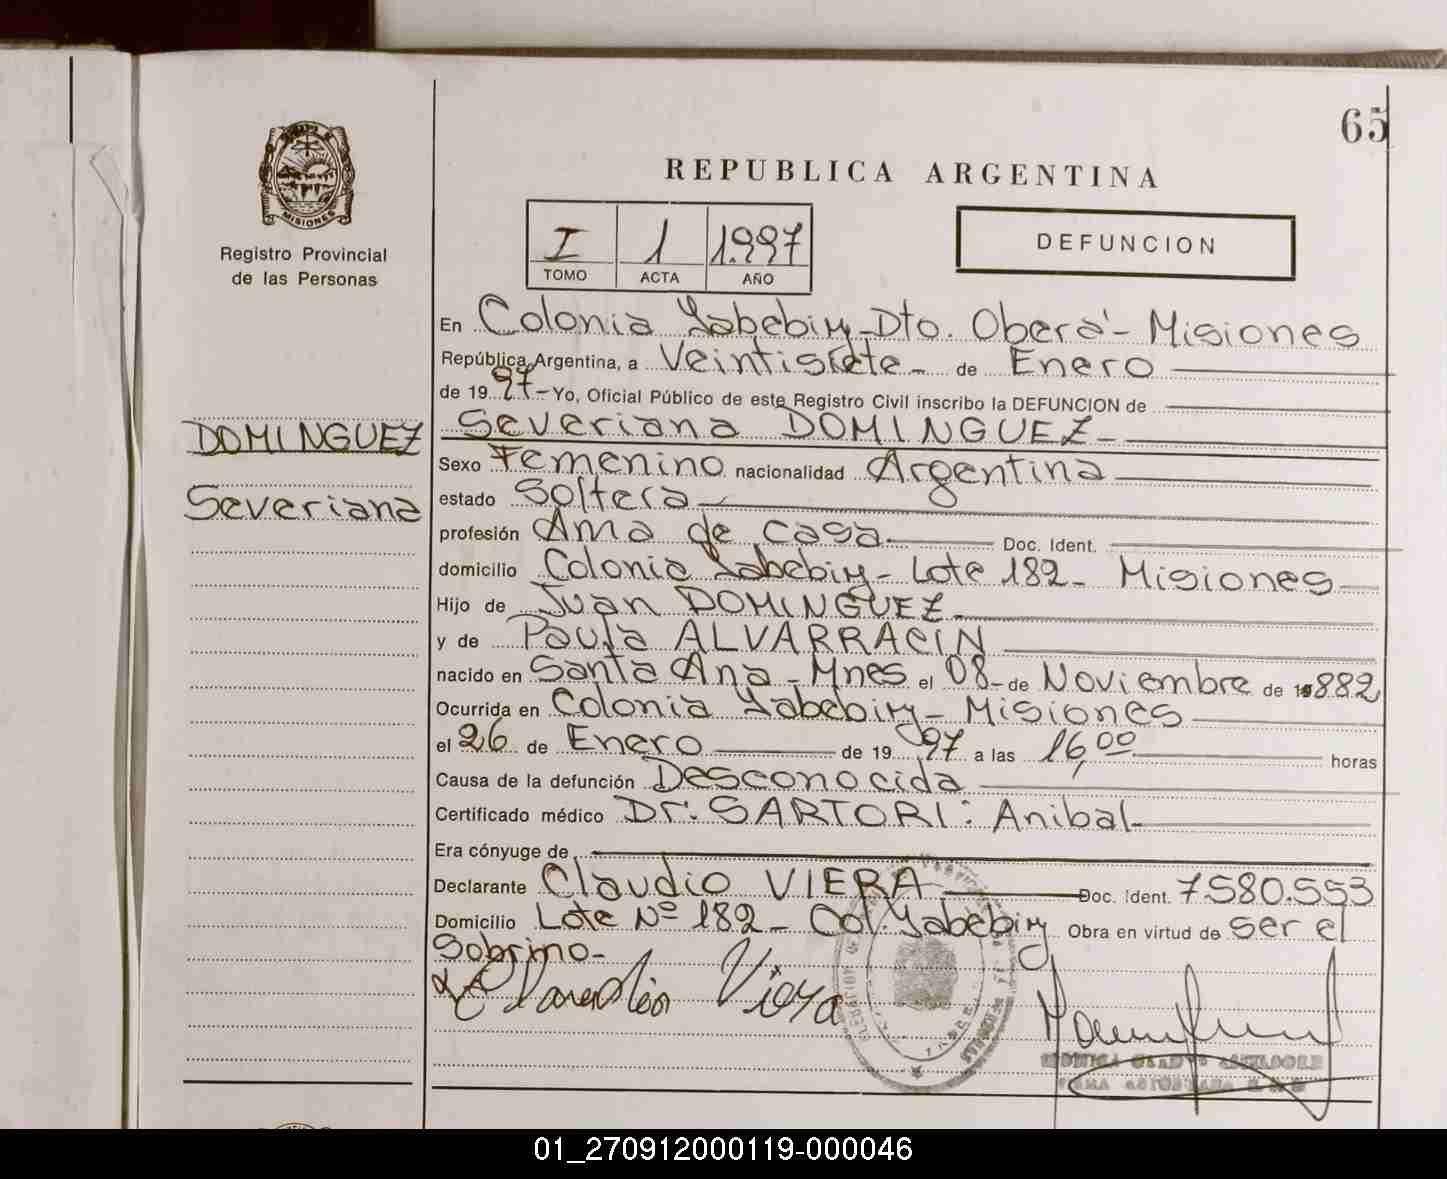 65
MISIONES
Registro Provincial
de las Personas
REPUBLICA ARGENTINA
I 1 1.997
TOMO ACTA AÑO
DEFUNCION
DOMINGUEZ
Severiana
En Colonia Yabebiry-Dto. Oberá-Misiones
República Argentina, a Veintisiete- de Enero
de 1997-Yo, Oficial Público de este Registro Civil inscribo la DEFUNCION de
Severiana DOMINGUEZ-
Sexo Femenino nacionalidad Argentina
estado Soltera
profesión Ama de casa Doc. Ident.
domicilio Colonia Yabebiry- Lote 182- Misiones
Hijo de Juan DOMINGUEZ-
y de Paula ALVARRACIN
nacido en Santa Ana-Mnes el 08-de Noviembre de 1882
Ocurrida en Colonia Yabebiry- Misiones
el 26 de Enero de 1997 a las 16,00 horas
Causa de la defunción Desconocida
Certificado médico Dr: SARTORI: Anibal-
Era cónyuge de
Declarante Claudio VIERA Doc. Ident. 7.580.553
Domicilio Lote Nº 182- Col. Yabebiry Obra en virtud de ser el
Sobrino-
Claudio Viera
01_270912000119-000046